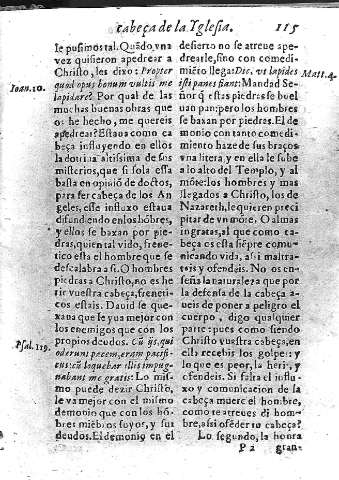 cabeça de la Yglesia. 115
se pusimos tal. Quãdo vna
vez quisieron apedrear a
Christo, les dixo: Propter
Ioan. 10.
quod opus bonum vultis me
lapidare? Por qual de las
muchas buenas obras que
os he hecho, me quereis
apedrear? Estaua como ca
beça influyendo en ellos
la dotrina altissima de sus
misterios, que si sola essa
basta en opiniõ de doctos,
para ser cabeça de los An
geles, esse influxo estaua
difundiendo en los hõbres,
y ellos se baxan por pie
dras, quien tal vido, frene
tico esta el hombre que se
descalabra a si. O hombres
piedras a Christo, no es he
rir vuestra cabeça, freneti
cos estais. Dauid se que
xaua que le yua mejor con
los enemigos que con los
propios deudos. Cũ ijs, qui
Psal. 119.
oderunt pacem, eram pacifi
cus: cũ loquebar illis impug
nabant me gratis: Lo mis
mo puede dezir Christo,
le va mejor con el mismo
demonio que con los hõ
bres miẽbros suyos, y sus
deudos. El demonio en el
desierto no se atreue ape-
drearle, sino con comedi
miẽto llega: Dic, vt lapides
Matt. 4.
isti panes fiant: Mandad Se
ñor q̃ estas piedras se buel
uan pan: pero los hombres
se baxan por piedras. El de
monio con tanto comedi-
miento haze de sus braços
vna litera, y en ella le sube
a lo alto del Templo, y al
mõte: los hombres y mas
llegados a Christo, los de
Nazareth, le quieren preci
pitar de vn mõte. O almas
ingratas, al que como ca-
beça os esta siẽpre comu-
nicando vida, assi maltra-
tais y ofendeis. No os en-
seña la naturaleza que por
la defensa de la cabeça a-
ueis de poner a peligro el
cuerpo, digo qualquier
parte: pues como siendo
Christo vuestra cabeça, en
ella recebis los golpes: y
lo que es peor, la heris, y
ofendeis. Si falta el influ-
xo y comunicacion de la
cabeça muere el hombre,
como te atreues di hom-
bre, assi ofẽder tu cabeça?
Lo segundo, la honra
P 2 gran-